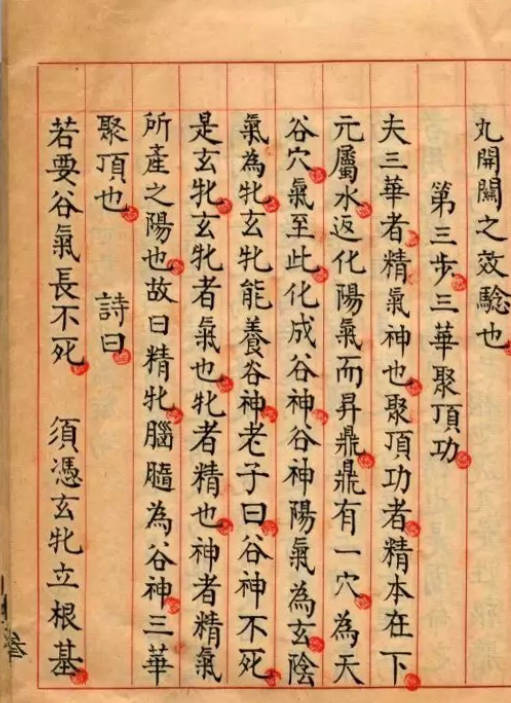 九開關之效驗也
第三步三華聚頂功
夫三華者精氣神也聚頂功者精本在下
元屬水返化陽氣而昇鼎鼎有一穴為天
谷穴氣至此化成谷神谷神陽氣為玄陰
氣為牝玄牝能養谷神老子曰谷神不死
是玄牝玄牝者氣也牝者精也神者精氣
所產之陽也故曰精牝腦髓為谷神三華
聚頂也 詩曰
若要谷氣長不死 須憑玄牝立根基